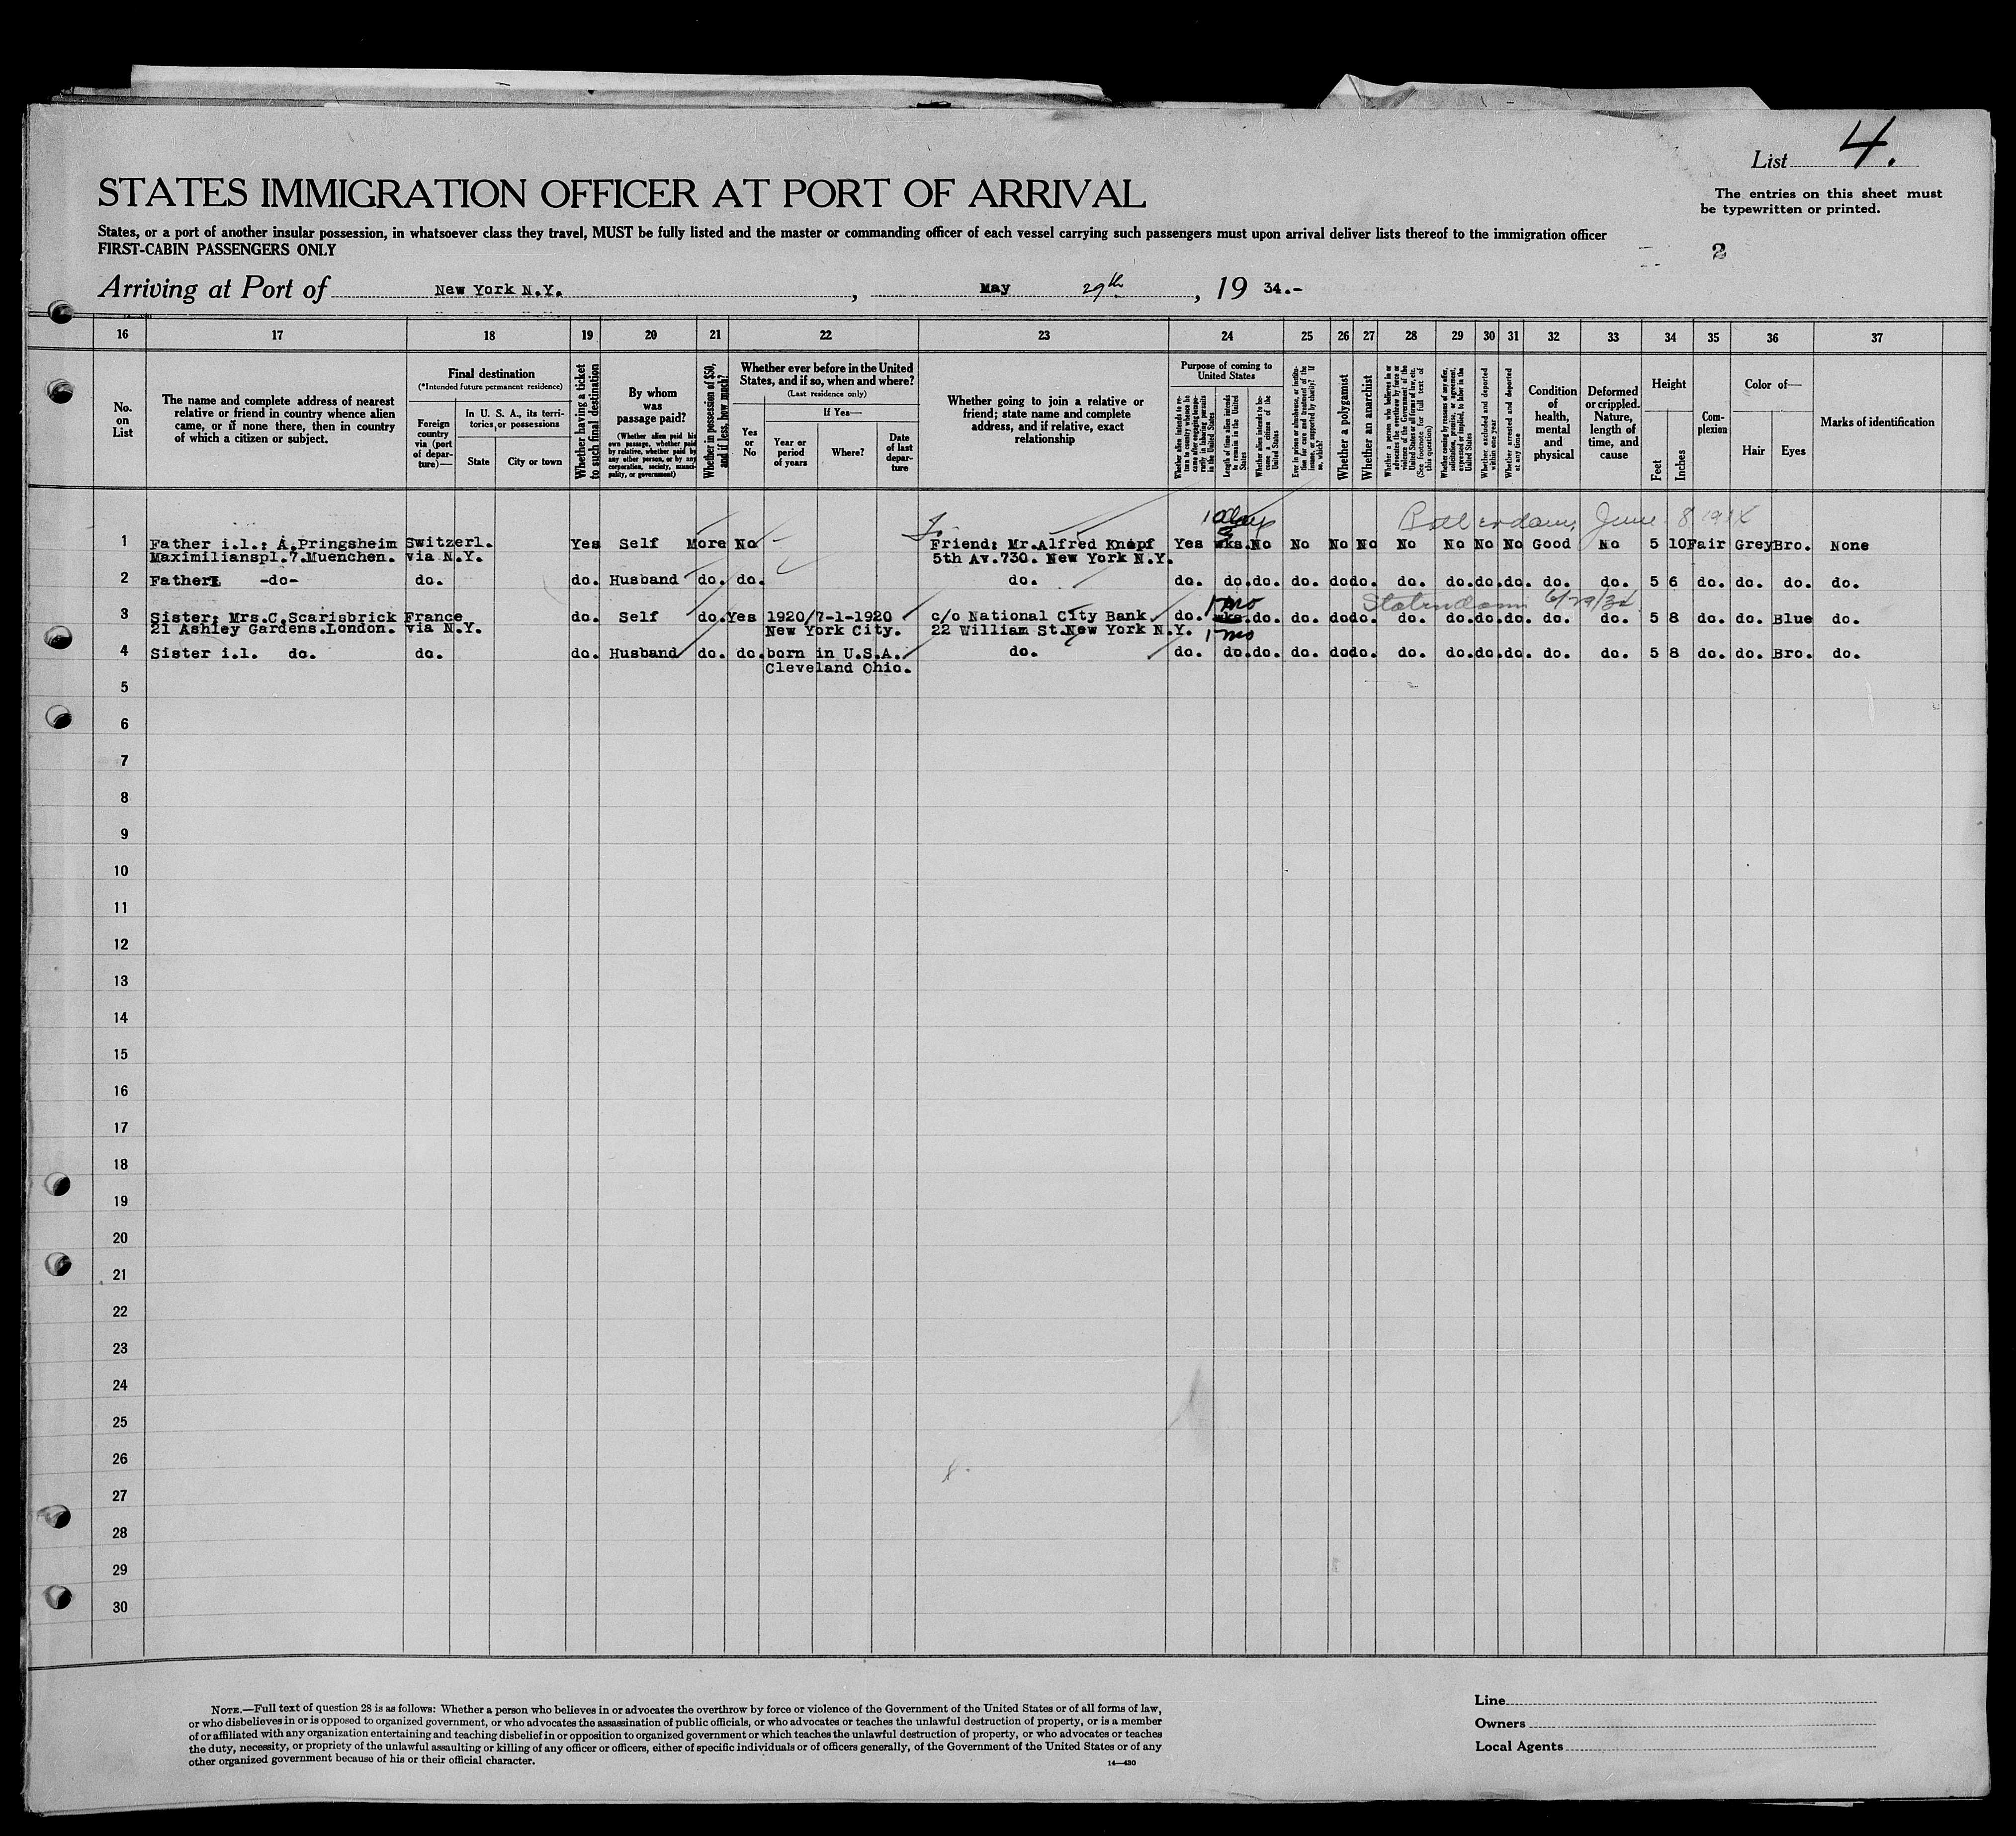 List 4.
STATES IMMIGRATION OFFICER AT PORT OF ARRIVAL
The entries on this sheet must
be typewritten or printed.
States, or a port of another insular possession, in whatsoever class they travel, MUST be fully listed and the master or commanding officer of each vessel carrying such passengers must upon arrival deliver lists thereof to the immigration officer
FIRST-CABIN PASSENGERS ONLY
2
Arriving at Port of New York N.Y. , May 29th , 19 34.-
16 17 18 19 20 21 22 23 24 25 26 27 28 29 30 31 32 33 34 35 36 37
No.
on
List
The name and complete address of nearest
relative or friend in country whence alien
came, or if none there, then in country
of which a citizen or subject.
Final destination
(*Intended future permanent residence)
Foreign
country
via (port
of depar-
ture)—
In U. S. A., its terri-
tories, or possessions
State City or town
Whether having a ticket
to such final destination
By whom
was
passage paid?
(Whether alien paid his
own passage, whether paid
by relative, whether paid by
any other person, or by any
corporation, society, munici-
pality, or government)
Whether in possession of $50,
and if less, how much?
Whether ever before in the United
States, and if so, when and where?
(Last residence only)
Yes
or
No
If Yes—
Year or
period
of years
Where?
Date
of last
depar-
ture
Whether going to join a relative or
friend; state name and complete
address, and if relative, exact
relationship
Purpose of coming to
United States
Whether alien intends to re-
turn to country whence he
came after engaging tempo-
rarily in laboring pursuits
in the United States
Length of time alien intends
to remain in the United
States
Whether alien intends to be-
come a citizen of the
United States
Ever in prison or almshouse, or institu-
tion for care and treatment of the
insane, or supported by charity? If
so, which?
Whether a polygamist
Whether an anarchist
Whether a person who believes in or
advocates the overthrow by force or
violence of the Government of the
United States or all forms of law, etc.
(See footnote for full text of
this question)
Whether coming by reasons of any offer,
solicitation, promise, or agreement,
expressed or implied, to labor in the
United States
Whether excluded and deported
within one year
Whether arrested and deported
at any time
Condition
of
health,
mental
and
physical
Deformed
or crippled.
Nature,
length of
time, and
cause
Height
Feet
Inches
Com-
plexion
Color of—
Hair Eyes
Marks of identification
10 days Rotterdam, June 8, 1934
1 Father i.l.: A.Pringsheim Switzerl. Yes Self More No Friend: Mr.Alfred Knopf Yes wks. No No No No No No No No Good No 5 10 Fair Grey Bro. None
Maximilianspl.7.Muenchen. via N.Y. 5th Av.730. New York N.Y.
2 Father -do- do. do. Husband do. do. do. do. do. do. do. do do. do. do. do. do. do. do. 5 6 do. do. do. do.
1 mo Statendam 6/29/34
3 Sister: Mrs.C.Scarisbrick France do. Self do. Yes 1920/7-1-1920 c/o National City Bank do. wks. do. do. do do. do. do. do. do. do. do. 5 8 do. do. Blue do.
21 Ashley Gardens.London. via N.Y. New York City. 22 William St.New York N.Y. 1 mo
4 Sister i.l. do. do. do. Husband do. do. born in U.S.A. do. do. do. do. do. do do. do. do. do. do. do. do. 5 8 do. do. Bro. do.
Cleveland Ohio.
5
6
7
8
9
10
11
12
13
14
15
16
17
18
19
20
21
22
23
24
25
26
27
28
29
30
NOTE.—Full text of question 28 is as follows: Whether a person who believes in or advocates the overthrow by force or violence of the Government of the United States or of all forms of law,
or who disbelieves in or is opposed to organized government, or who advocates the assassination of public officials, or who advocates or teaches the unlawful destruction of property, or is a member
of or affiliated with any organization entertaining and teaching disbelief in or opposition to organized government or which teaches the unlawful destruction of property, or who advocates or teaches
the duty, necessity, or propriety of the unlawful assaulting or killing of any officer or officers, either of specific individuals or of officers generally, of the Government of the United States or of any
other organized government because of his or their official character.
14—430
Line
Owners
Local Agents